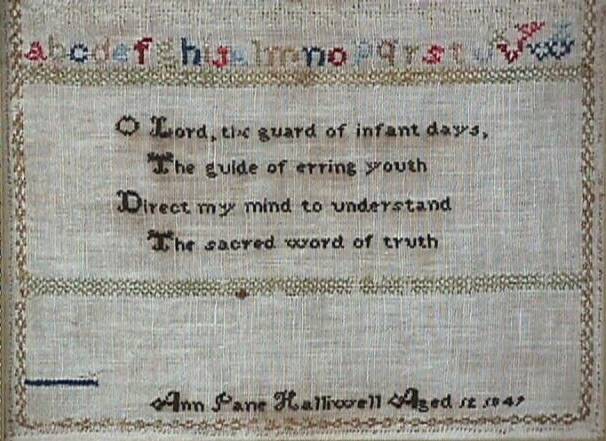 a b c d e f g h i j k l m n o p q r s t u v w
O Lord, the guard of infant days,
The guide of erring youth
Direct my mind to understand
The sacred word of truth
Ann Jane Halliwell Aged 12 1847